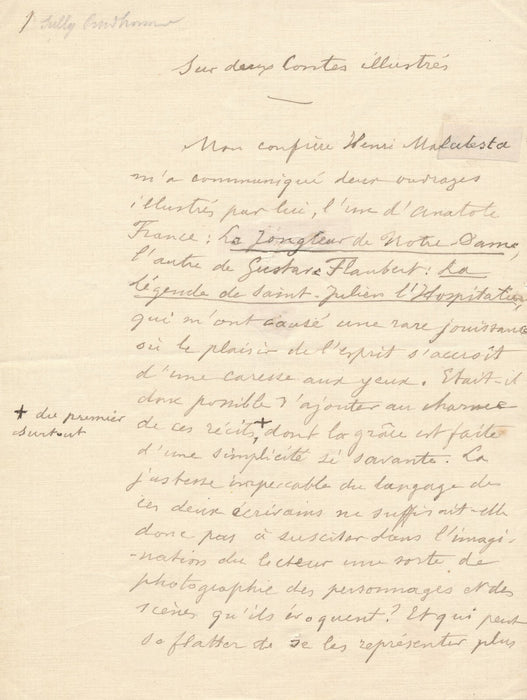 Sully Prudhomme
Sur deux Contes illustrés
Mon confrère Henri Malatesta
m'a communiqué deux ouvrages
illustrés par lui, l'un d'Anatole
France : Le Jongleur de Notre Dame,
l'autre de Gustave Flaubert : La
légende de Saint-Julien l'Hospitalier,
qui m'ont causé une rare jouissance
où le plaisir de l'esprit s'accroît
d'une caresse aux yeux. Etait-il
donc possible d'ajouter au charme
+ du premier
surtout
de ces récits,+ dont la grâce est faite
d'une simplicité si savante. La
justesse impeccable du langage de
ces deux écrivains ne suffisait-elle
donc pas à susciter dans l'imagi-
-nation du lecteur une sorte de
photographie des personnages et des
scènes qu'ils évoquent ? Et qui peut
se flatter de se les représenter plus